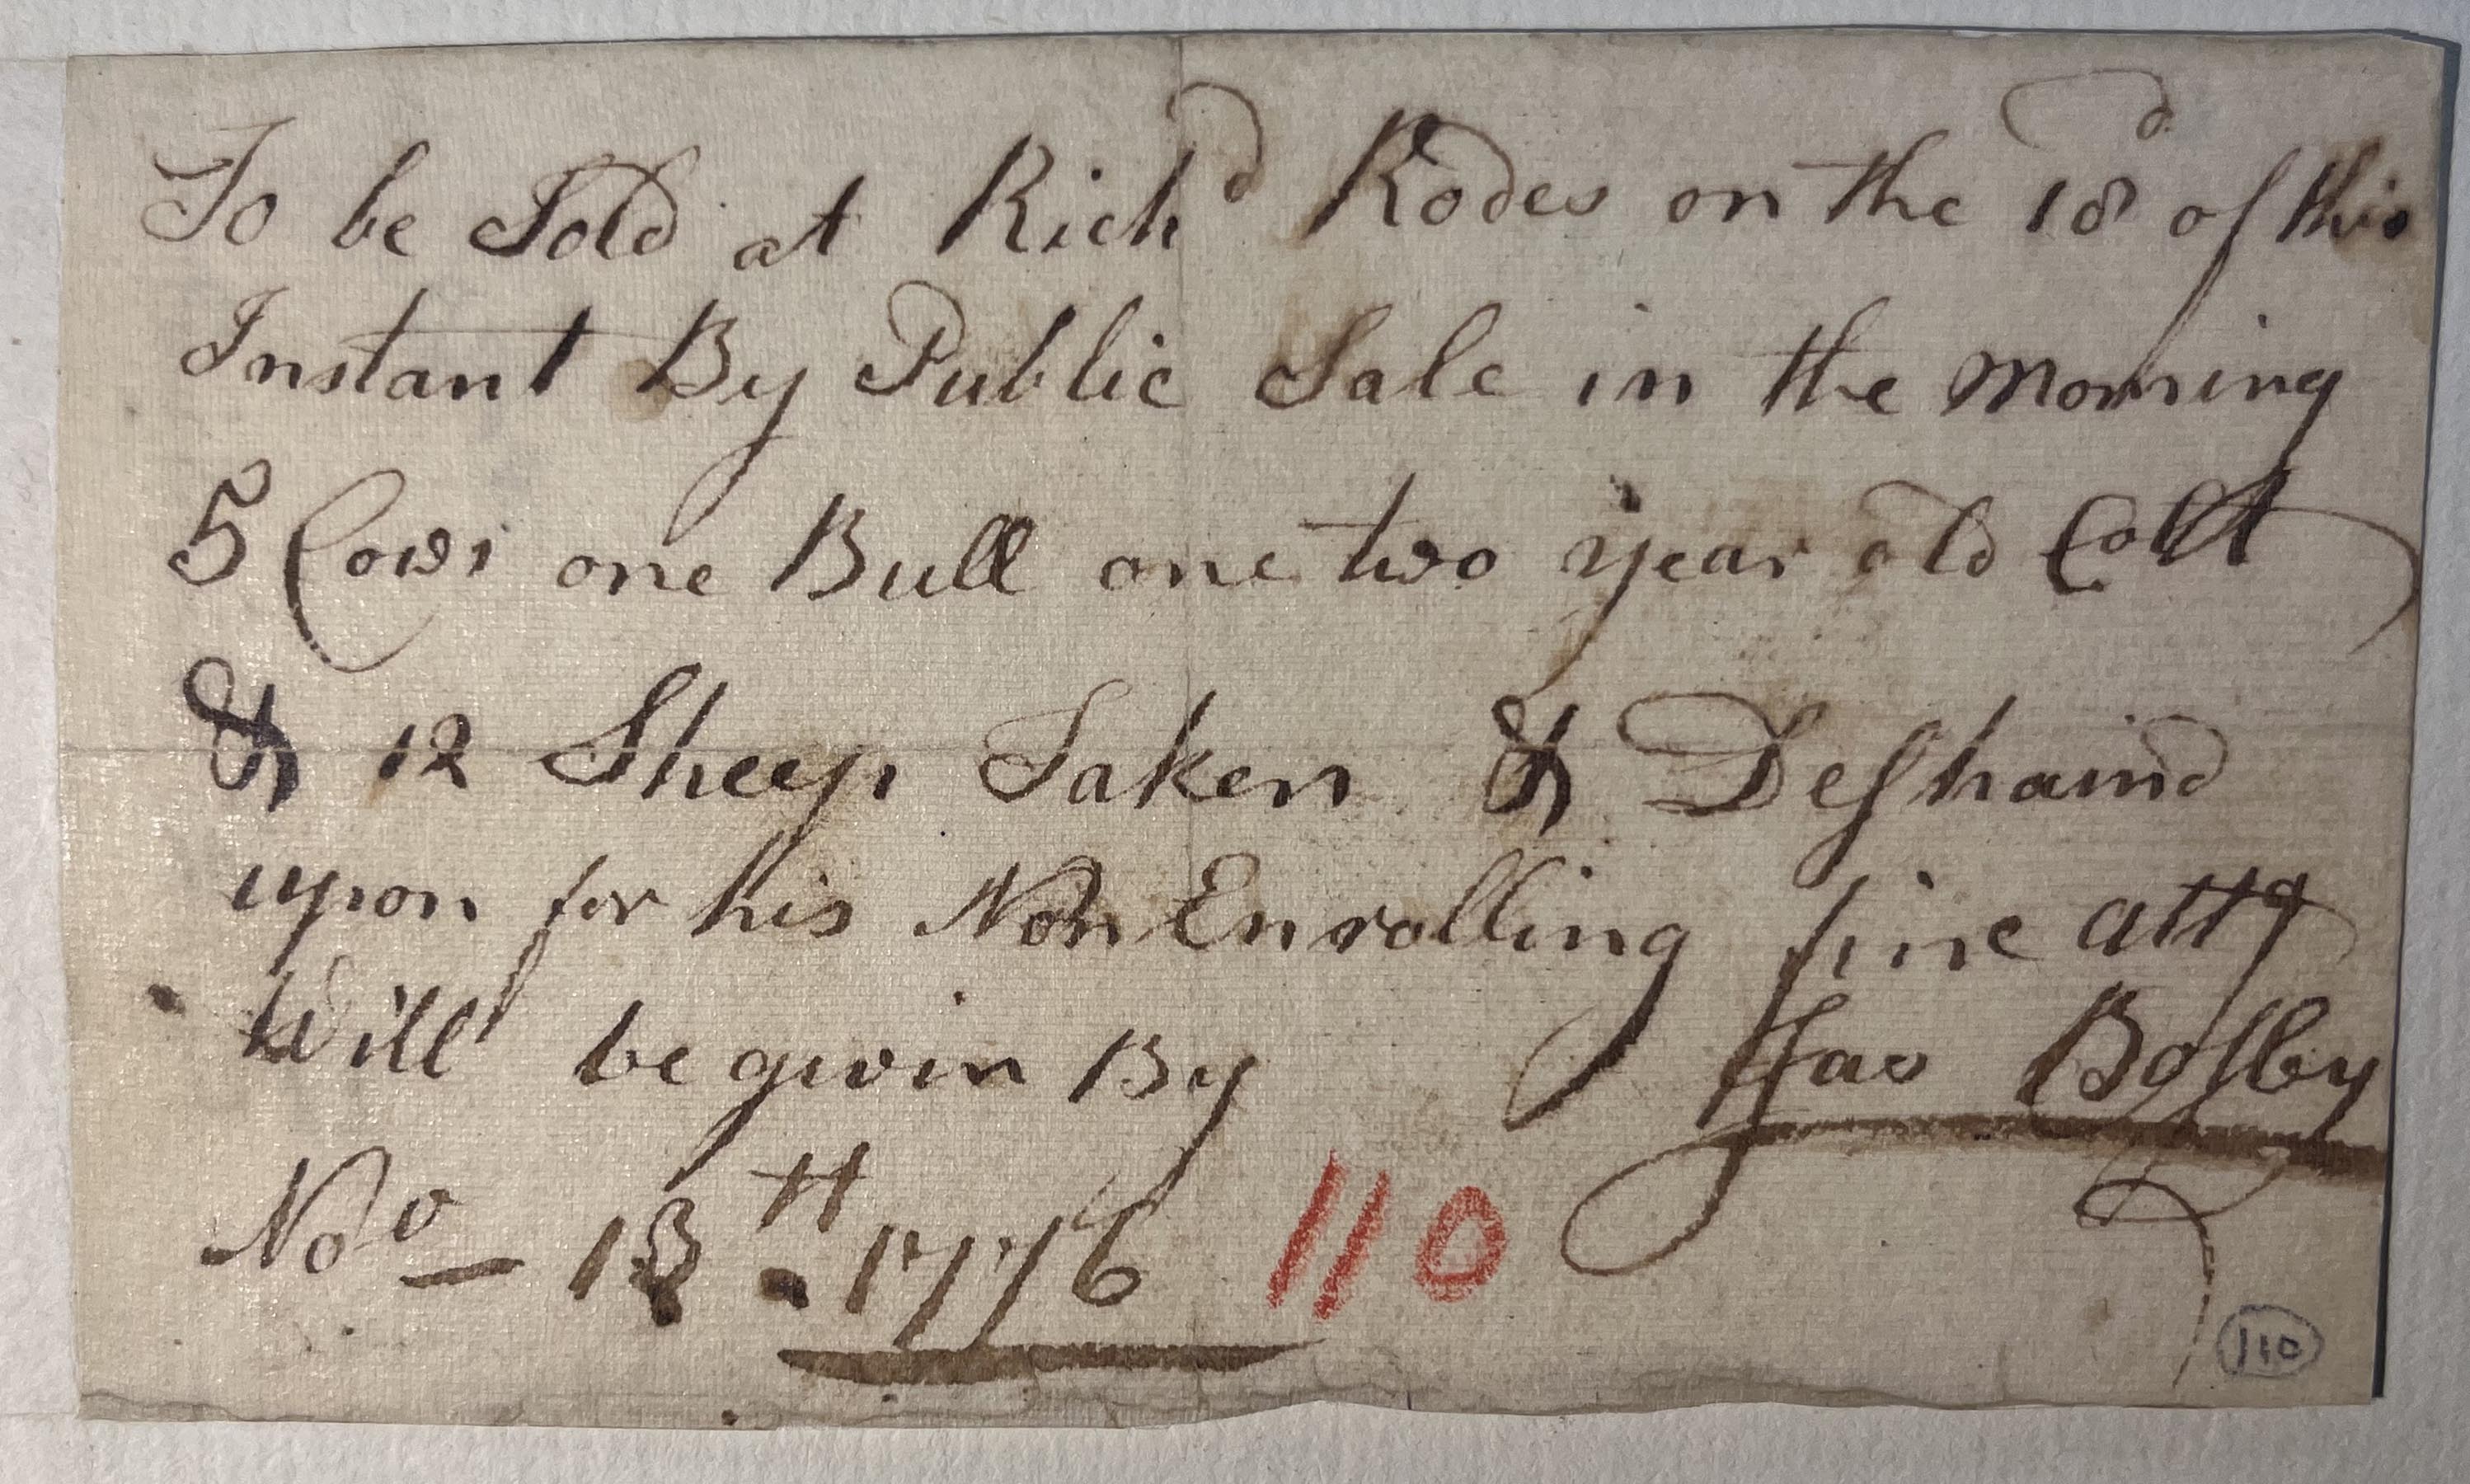 To be Sold at Rich^d Rodes on the 18^d of this
Instant By Public Sale in the Morning
5 Cows one Bull one two year old Colt
& 12 Sheep Taken & Deſhaind
upon for his Non Enrolling fine attg
Will be givin By Jas Boſley
Nov^o — 13^tt . 1776 110
110